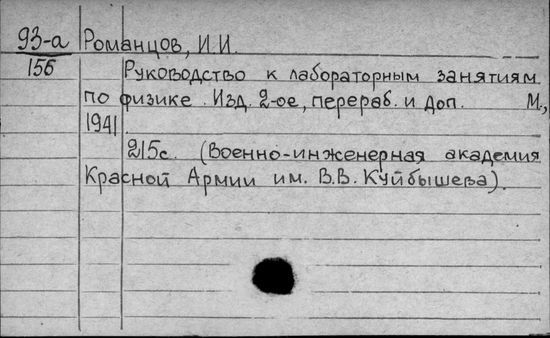 93-а Романцов, И.И.
156 Руководство к лабораторным занятиям
по физике. Изд. 2-ое, перераб. и доп. М.,
1941.
215с. (Военно-инженерная академия
Красной Армии им. В.В. Куйбышева).